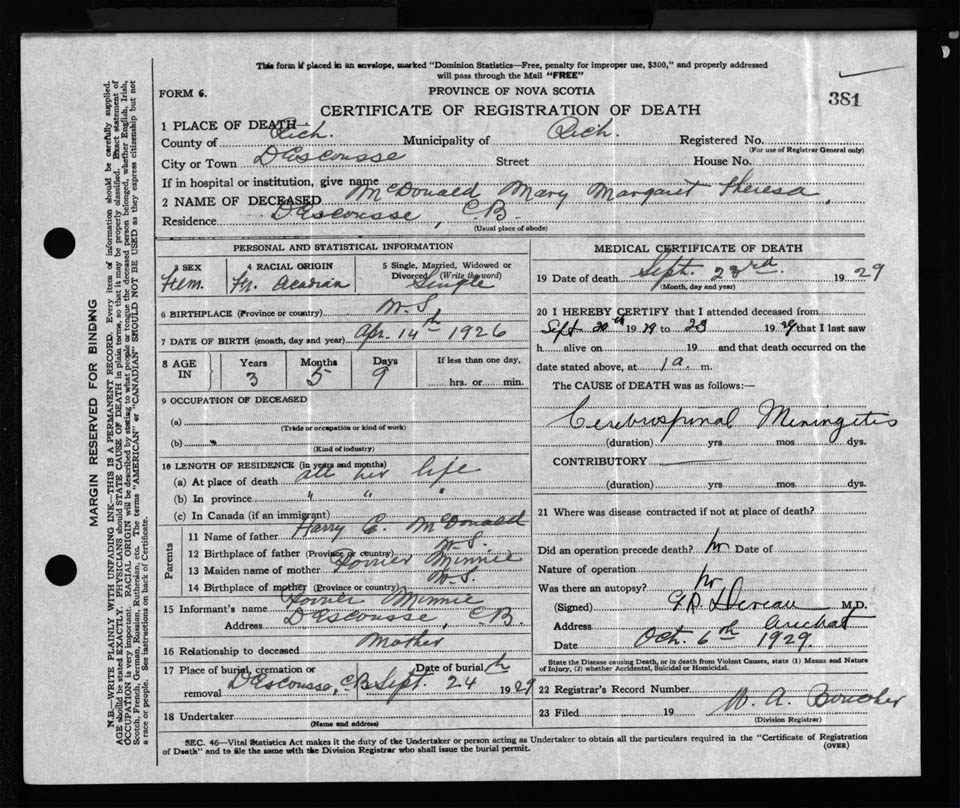 This form if placed in an envelope, marked "Dominion Statistics—Free, penalty for improper use, $300," and properly addressed
will pass through the Mail "FREE"
FORM 6.
PROVINCE OF NOVA SCOTIA
381
CERTIFICATE OF REGISTRATION OF DEATH
1 PLACE OF DEATH
County of Rich. Municipality of Rich. Registered No.
(For use of Registrar General only)
City or Town D'Escousse Street House No.
If in hospital or institution, give name
2 NAME OF DECEASED McDonald Mary Margaret Theresa
Residence D'Escousse, C.B.
(Usual place of abode)
PERSONAL AND STATISTICAL INFORMATION
3 SEX Fem.
4 RACIAL ORIGIN Fr. Acadian
5 Single, Married, Widowed or
Divorced (Write the word) Single
6 BIRTHPLACE (Province or country) N.S
7 DATE OF BIRTH (month, day and year) Apr. 14th 1926
8 AGE IN Years 3 Months 5 Days 9 If less than one day,
hrs. or min.
9 OCCUPATION OF DECEASED
(a)
(Trade or occupation or kind of work)
(b)
(Kind of industry)
10 LENGTH OF RESIDENCE (in years and months)
(a) At place of death all her life
(b) In province " " "
(c) In Canada (if an immigrant)
Parents
11 Name of father Harry E. McDonald
12 Birthplace of father (Province or country) N.S.
13 Maiden name of mother Poirier Minnie
14 Birthplace of mother (Province or country) N.S.
15 Informant's name Poirier Minnie
Address D'Escousse, C.B.
16 Relationship to deceased Mother
17 Place of burial, cremation or
removal D'Escousse, C.B. Date of burial Sept. 24th 1929
18 Undertaker
(Name and address)
MEDICAL CERTIFICATE OF DEATH
19 Date of death Sept. 23rd. 1929
(Month, day and year)
20 I HEREBY CERTIFY that I attended deceased from
Sept 20th 1929 to 23 1929 that I last saw
h alive on 19 and that death occurred on the
date stated above, at 1 a. m.
The CAUSE of DEATH was as follows:—
Cerebrospinal Meningitis
(duration) yrs. mos. dys.
CONTRIBUTORY
(duration) yrs. mos. dys.
21 Where was disease contracted if not at place of death?
Did an operation precede death? no Date of
Nature of operation
Was there an autopsy? no
(Signed) Deveau M.D.
Address Arichat
Date Oct. 6th 1929
State the Disease causing Death, or in death from Violent Causes, state (1) Means and Nature
of Injury, (2) whether Accidental, Suicidal or Homicidal.
22 Registrar's Record Number
23 Filed 19 W. A. Boucher
(Division Registrar)
SEC. 46—Vital Statistics Act makes it the duty of the Undertaker or person acting as Undertaker to obtain all the particulars required in the "Certificate of Registration
of Death" and to file the same with the Division Registrar who shall issue the burial permit.
(OVER)
MARGIN RESERVED FOR BINDING
N.B.—WRITE PLAINLY WITH UNFADING INK—THIS IS A PERMANENT RECORD. Every item of information should be carefully supplied.
AGE should be stated EXACTLY. PHYSICIANS should STATE CAUSE OF DEATH in plain terms, so that it may be properly classified. Exact statement of
OCCUPATION is very important. RACIAL ORIGIN will be described by stating to what people or tongue the deceased person belonged, whether English, Irish,
Scotch, French, German, Russian, Ruthenian, etc. The terms "AMERICAN" or "CANADIAN" SHOULD NOT BE USED as they express citizenship but not
a race or people. See instructions on back of Certificate.